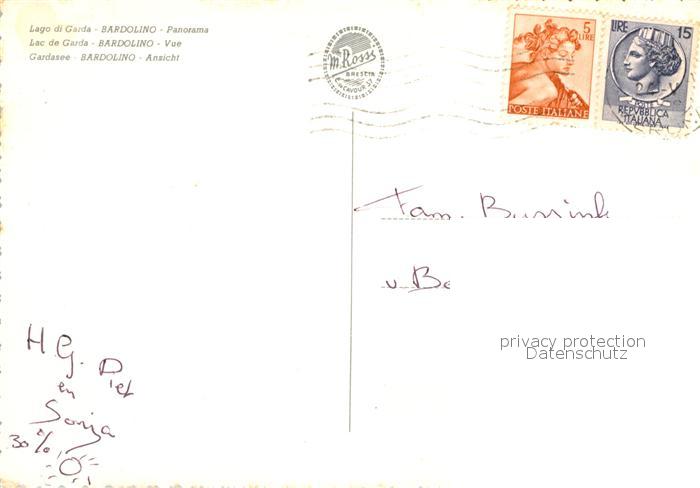 Lago di Garda - BARDOLINO - Panorama
Lac de Garda - BARDOLINO - Vue
Gardasee - BARDOLINO - Ansicht
m. Rossi
BRESCIA
C. CAVOUR 37
5
LIRE
POSTE ITALIANE
LIRE 15
REPVBBLICA
ITALIANA
Fam.
v.
privacy protection
Datenschutz
H G.
Piet
en
Sonja
30%